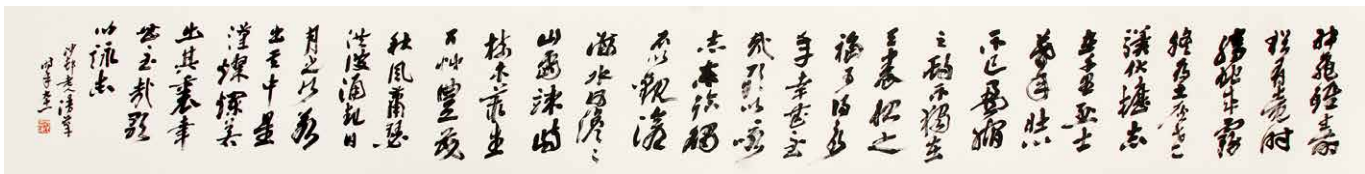 神龜雖壽
猶有竟時
騰蛇乘霧
終為土灰老
驥伏櫪志
在千里烈士
暮年壯心
不已盈縮
之期不獨在
天養怡之
福可得永
年幸甚至
哉歌以詠
志東臨碣
石以觀滄
海水何澹〻
山島竦峙
樹木叢生
百草豐茂
秋風蕭瑟
洪波湧起日
月之行若
出其中星
漢燦爛若
出其裏幸
甚至哉歌
以詠志